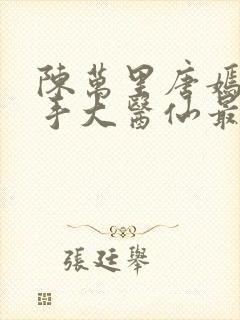 陳萬里唐嫣
手大醫仙最
張廷舉